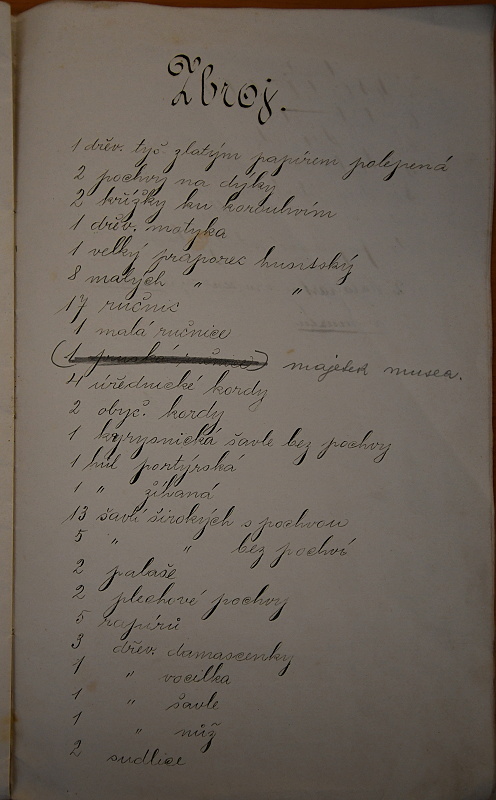 Zbroj.
1 dřev. tyč. zlatým papírem polepená
2 pochvy na dýky
2 kružky ku kordulvím
1 dřev. motyka
1 velký praporec husitský
8 malých " "
17 ručnic
1 malá ručnice
(1 pruská ručnice) majetek musea.
4 úřednické kordy
2 obyč. kordy
1 kyrysnická šavle bez pochvy
1 hůl portýrská
1 " žíhaná
13 šavlí širokých s pochvou
5 " " bez pochvi
2 palaše
2 plechové pochvy
5 rapírů
3 dřev. damascenky
1 " vocilka
1 " šavle
1 " nůž
2 sudlice